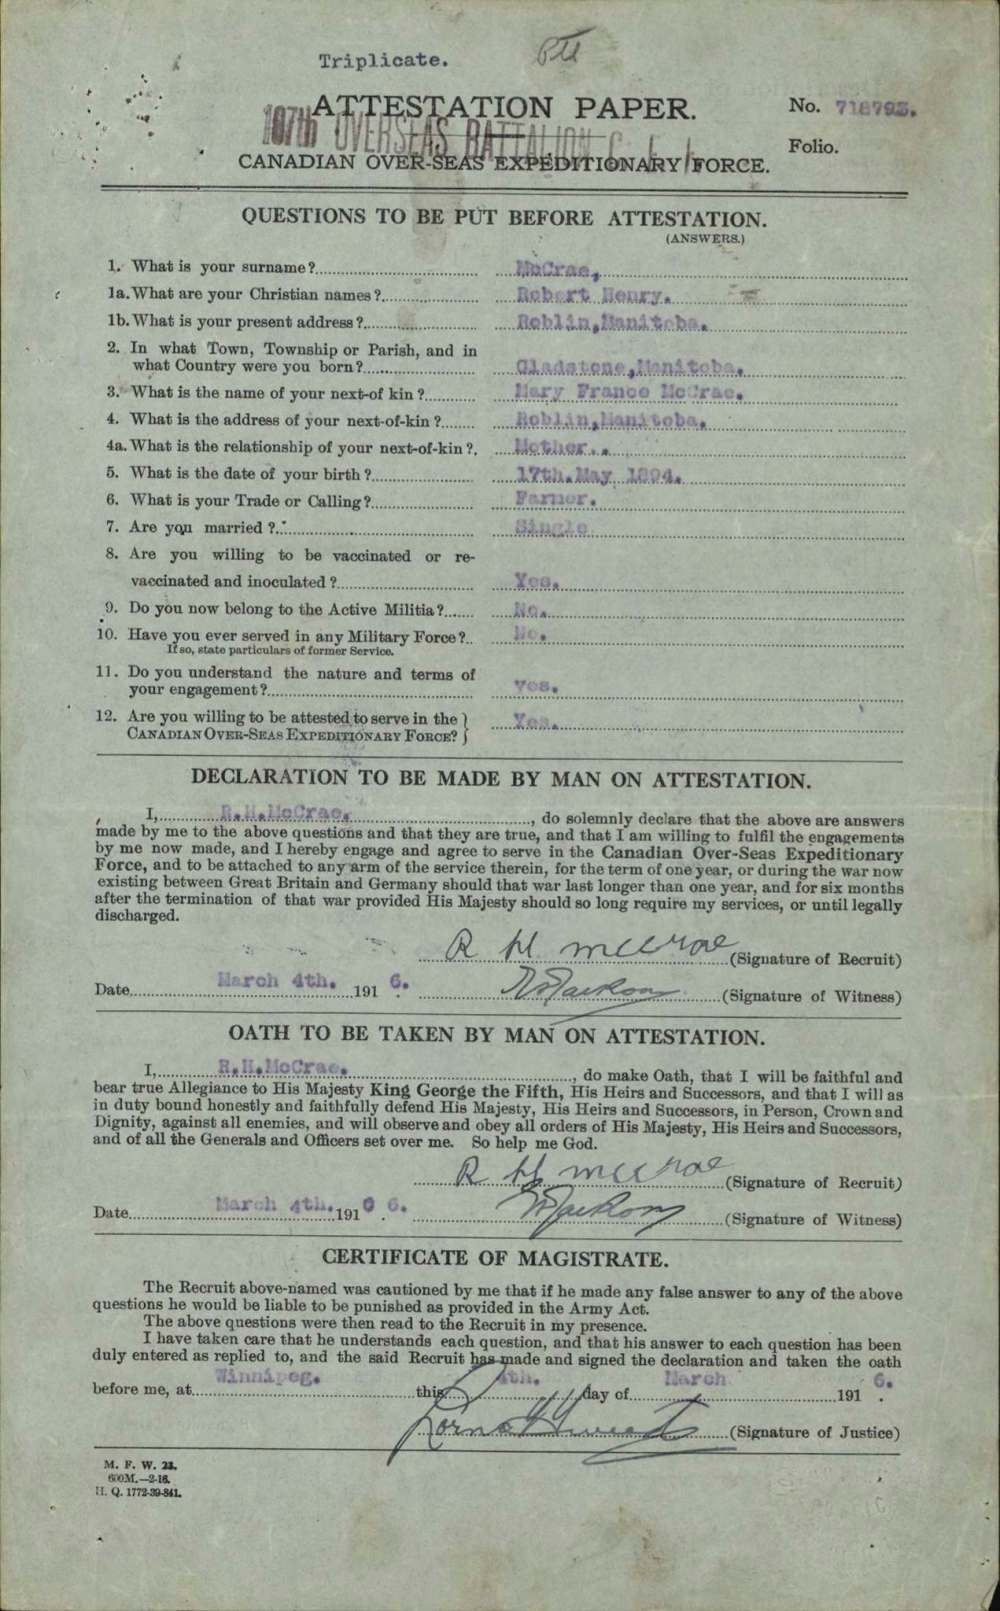 Triplicate.
Pte
ATTESTATION PAPER.
No. 718793.
107th OVERSEAS BATTALION C.
Folio.
CANADIAN OVER-SEAS EXPEDITIONARY FORCE.
QUESTIONS TO BE PUT BEFORE ATTESTATION.
(ANSWERS.)
1. What is your surname? McCrae,
1a. What are your Christian names? Robert Henry.
1b. What is your present address? Roblin, Manitoba.
2. In what Town, Township or Parish, and in
what Country were you born? Gladstone, Manitoba.
3. What is the name of your next-of kin? Mary France McCrae.
4. What is the address of your next-of-kin? Roblin, Manitoba.
4a. What is the relationship of your next-of-kin? Mother..
5. What is the date of your birth? 17th. May 1894.
6. What is your Trade or Calling? Farmer.
7. Are you married? Single
8. Are you willing to be vaccinated or re-
vaccinated and inoculated? Yes.
9. Do you now belong to the Active Militia? No.
10. Have you ever served in any Military Force? No.
If so, state particulars of former Service.
11. Do you understand the nature and terms of
your engagement? yes.
12. Are you willing to be attested to serve in the
CANADIAN OVER-SEAS EXPEDITIONARY FORCE? } Yes.
DECLARATION TO BE MADE BY MAN ON ATTESTATION.
I, R.H.McCrae, do solemnly declare that the above are answers
made by me to the above questions and that they are true, and that I am willing to fulfil the engagements
by me now made, and I hereby engage and agree to serve in the Canadian Over-Seas Expeditionary
Force, and to be attached to any arm of the service therein, for the term of one year, or during the war now
existing between Great Britain and Germany should that war last longer than one year, and for six months
after the termination of that war provided His Majesty should so long require my services, or until legally
discharged.
R H McCrae (Signature of Recruit)
Date March 4th. 191 6. (Signature of Witness)
OATH TO BE TAKEN BY MAN ON ATTESTATION.
I, R.H.McCrae. , do make Oath, that I will be faithful and
bear true Allegiance to His Majesty King George the Fifth, His Heirs and Successors, and that I will as
in duty bound honestly and faithfully defend His Majesty, His Heirs and Successors, in Person, Crown and
Dignity, against all enemies, and will observe and obey all orders of His Majesty, His Heirs and Successors,
and of all the Generals and Officers set over me. So help me God.
R H McCrae (Signature of Recruit)
Date March 4th. 191 6 6. (Signature of Witness)
CERTIFICATE OF MAGISTRATE.
The Recruit above-named was cautioned by me that if he made any false answer to any of the above
questions he would be liable to be punished as provided in the Army Act.
The above questions were then read to the Recruit in my presence.
I have taken care that he understands each question, and that his answer to each question has been
duly entered as replied to, and the said Recruit has made and signed the declaration and taken the oath
before me, at Winnipeg. this 4th. day of March 191 6.
(Signature of Justice)
M. F. W. 23.
600M.—2-16.
H. Q. 1772-39-841.